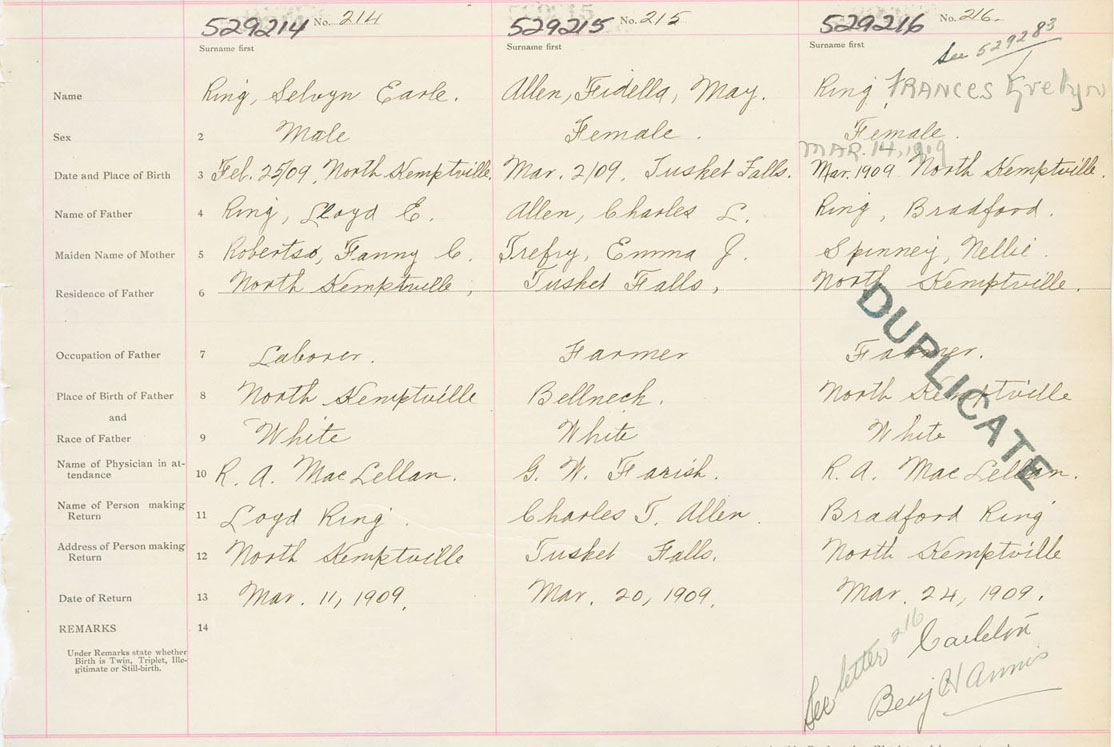 529214 No. 214 529215 No. 215 529216 No. 216
See 529283
Surname first Surname first Surname first
Name Ring, Selvyn Earle. Allen, Fidella, May. Ring FRANCES Evelyn
Sex 2 Male Female. Female.
MAR. 14, 1909
Date and Place of Birth 3 Feb. 25/09, North Kemptville. Mar. 2/09. Tusket Falls. Mar. 1909 North Kemptville.
Name of Father 4 Ring, Lloyd E. Allen, Charles L. Ring, Bradford.
Maiden Name of Mother 5 Robertso, Fanny C. Trefry, Emma J. Spinney, Nellie.
Residence of Father 6 North Kemptville, Tusket Falls, North Kemptville.
DUPLICATE
Occupation of Father 7 Laborer. Farmer Farmer.
Place of Birth of Father 8 North Kemptville Bellneck. North Kemptville
and
Race of Father 9 White White White
Name of Physician in at-
tendance 10 R. A. MacLellan. G. W. Farish. R. A. MacLellan.
Name of Person making
Return 11 Loyd Ring. Charles T. Allen. Bradford Ring
Address of Person making
Return 12 North Kemptville Tusket Falls. North Kemptville
Date of Return 13 Mar. 11, 1909. Mar. 20, 1909. Mar. 24, 1909.
REMARKS 14
Under Remarks state whether
Birth is Twin, Triplet, Ille-
gitimate or Still-birth.
See letter 216
Carleton
Benj H Annis